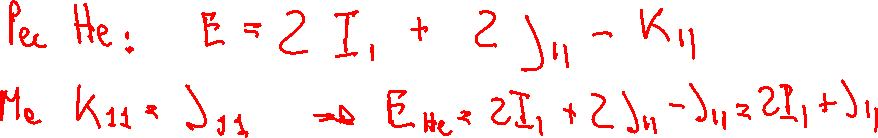 Per He: E = 2 I₁ + 2 J₁₁ - K₁₁
Ma K₁₁ = J₁₁ ⇒ E_He = 2I₁ + 2J₁₁ - J₁₁ = 2I₁ + J₁₁